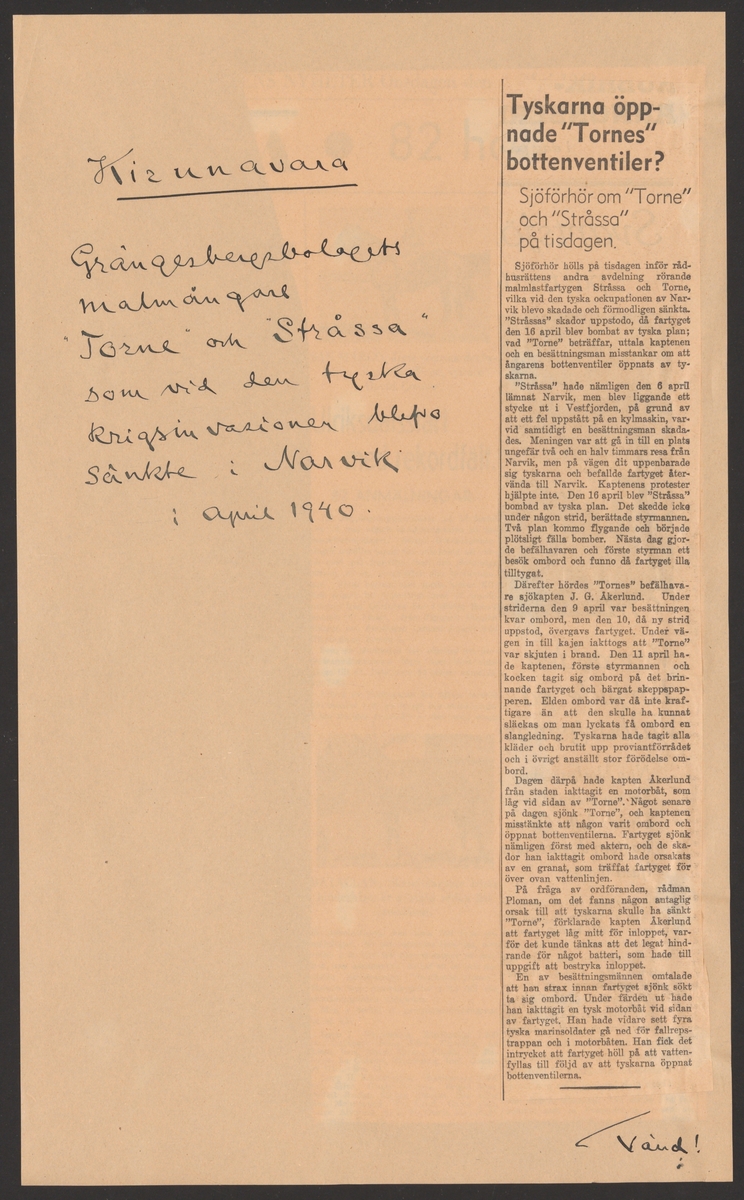 Kirunavara
Grängesbergsbolagets
malmångare
"Torne" och "Stråssa"
som vid den tyska
krigsinvasionen blefvo
sänkte i Narvik
i april 1940.
Tyskarna öpp-
nade "Tornes"
bottenventiler?
Sjöförhör om "Torne"
och "Stråssa"
på tisdagen.
Sjöförhör hölls på tisdagen inför råd-
husrättens andra avdelning rörande
malmlastfartygen Stråssa och Torne,
vilka vid den tyska ockupationen av Nar-
vik blevo skadade och förmodligen sänkta.
"Stråssas" skador uppstodo, då fartyget
den 16 april blev bombat av tyska plan;
vad "Torne" beträffar, uttala kaptenen
och en besättningsman misstankar om att
ångarens bottenventiler öppnats av ty-
skarna.
"Stråssa" hade nämligen den 6 april
lämnat Narvik, men blev liggande ett
stycke ut i Vestfjorden, på grund av
att ett fel uppstått på en kylmaskin, var-
vid samtidigt en besättningsman skada-
des. Meningen var att gå in till en plats
ungefär två och en halv timmars resa från
Narvik, men på vägen dit uppenbarade
sig tyskarna och befallde fartyget åter-
vända till Narvik. Kaptenens protester
hjälpte inte. Den 16 april blev "Stråssa"
bombad av tyska plan. Det skedde icke
under någon strid, berättade styrmannen.
Två plan kommo flygande och började
plötsligt fälla bomber. Nästa dag gjor-
de befälhavaren och förste styrman ett
besök ombord och funno då fartyget illa
tilltygat.
Därefter hördes "Tornes" befälhava-
re sjökapten J. G. Åkerlund. Under
striderna den 9 april var besättningen
kvar ombord, men den 10, då ny strid
uppstod, övergavs fartyget. Under vä-
gen in till kajen iakttogs att "Torne"
var skjuten i brand. Den 11 april ha-
de kaptenen, förste styrmannen och
kocken tagit sig ombord på det brin-
nande fartyget och bärgat skeppspap-
peren. Elden ombord var då inte kraf-
tigare än att den skulle ha kunnat
släckas om man lyckats få ombord en
slangledning. Tyskarna hade tagit alla
kläder och brutit upp proviantförrådet
och i övrigt anställt stor förödelse om-
bord.
Dagen därpå hade kapten Åkerlund
från staden iakttagit en motorbåt, som
låg vid sidan av "Torne". Något senare
på dagen sjönk "Torne", och kaptenen
misstänkte att någon varit ombord och
öppnat bottenventilerna. Fartyget sjönk
nämligen först med aktern, och de ska-
dor han iakttagit ombord hade orsakats
av en granat, som träffat fartyget för
över ovan vattenlinjen.
På fråga av ordföranden, rådman
Ploman, om det fanns någon antaglig
orsak till att tyskarna skulle ha sänkt
"Torne", förklarade kapten Åkerlund
att fartyget låg mitt för inloppet, var-
för det kunde tänkas att det legat hind-
rande för något batteri, som hade till
uppgift att bestryka inloppet.
En av besättningsmännen omtalade
att han strax innan fartyget sjönk sökt
ta sig ombord. Under färden ut hade
han iakttagit en tysk motorbåt vid sidan
av fartyget. Han hade vidare sett fyra
tyska marinsoldater gå ned för fallreps-
trappan och i motorbåten. Han fick det
intrycket att fartyget höll på att vatten-
fyllas till följd av att tyskarna öppnat
bottenventilerna.
Vänd!